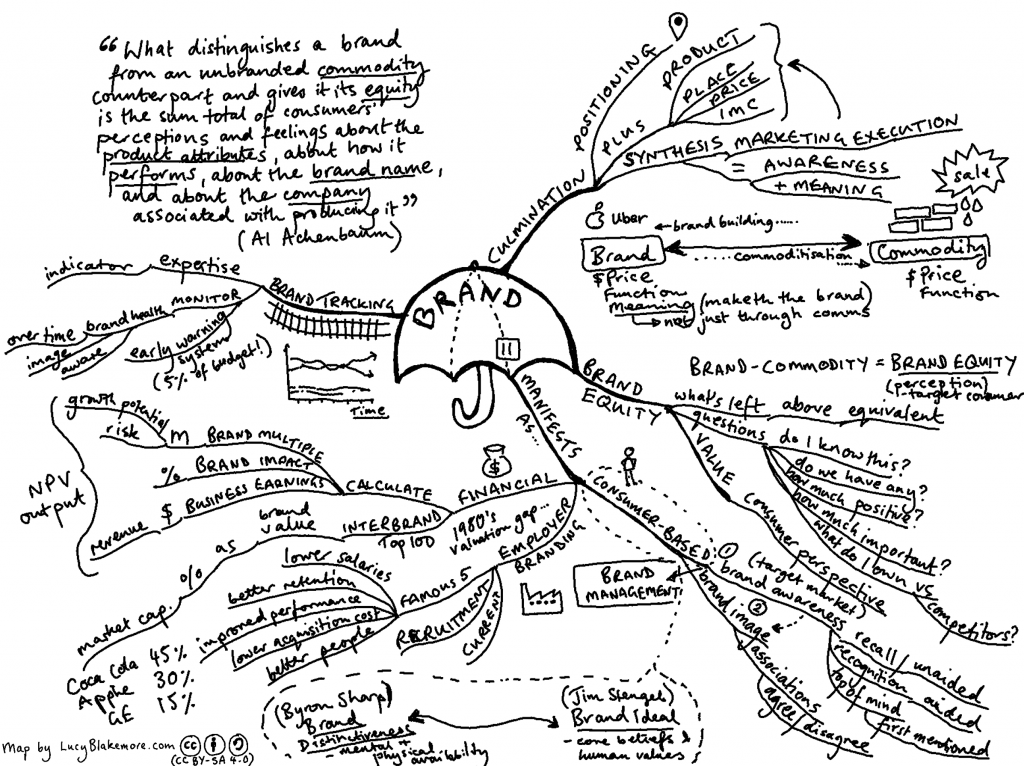 “What distinguishes a brand
from an unbranded commodity
counterpart and gives it its equity
is the sum total of consumers'
perceptions and feelings about the
product attributes, about how it
performs, about the brand name,
and about the company
associated with producing it”
(Al Achenbaum)
BRAND
CULMINATION
POSITIONING
PLUS
PRODUCT
PLACE
PRICE
IMC
SYNTHESIS MARKETING EXECUTION
= AWARENESS
+ MEANING
sale
Uber
brand building.....
Brand
Commodity
.....commoditisation...
$ Price
Function
Meaning (maketh the brand)
not just through comms
$ Price
Function
BRAND TRACKING
expertise
indicator
MONITOR
brand health
over time
image
aware
early warning
system
(5% of budget!)
Time
BRAND EQUITY
BRAND-COMMODITY = BRAND EQUITY
(perception)
target consumer
what's left above equivalent
questions
do I know this?
do we have any?
how much positive?
how much important?
what do I own vs
competitors?
VALUE
consumer perspective
(target market)
MANIFESTS
AS...
FINANCIAL
1980's
valuation gap...
INTERBRAND
Top 100
CALCULATE
M BRAND MULTIPLE
growth potential
risk
% BRAND IMPACT
$ BUSINESS EARNINGS
revenue
NPV
output
brand
value
as
%
market cap.
Coca Cola 45%
Apple 30%
GE 15%
EMPLOYER
BRANDING
FAMOUS 5
lower salaries
better retention
improved performance
lower acquisition cost
better people
RECRUITMENT
CURRENT
CONSUMER-BASED
BRAND
MANAGEMENT
1
brand awareness
recall / unaided
recognition aided
top of mind
first mentioned
2
brand image
associations
agree/disagree
(Byron Sharp)
Brand
Distinctiveness
- mental +
physical availability
(Jim Stengel)
Brand Ideal
- core beliefs &
human values
Map by LucyBlakemore.com
(CC BY-SA 4.0)